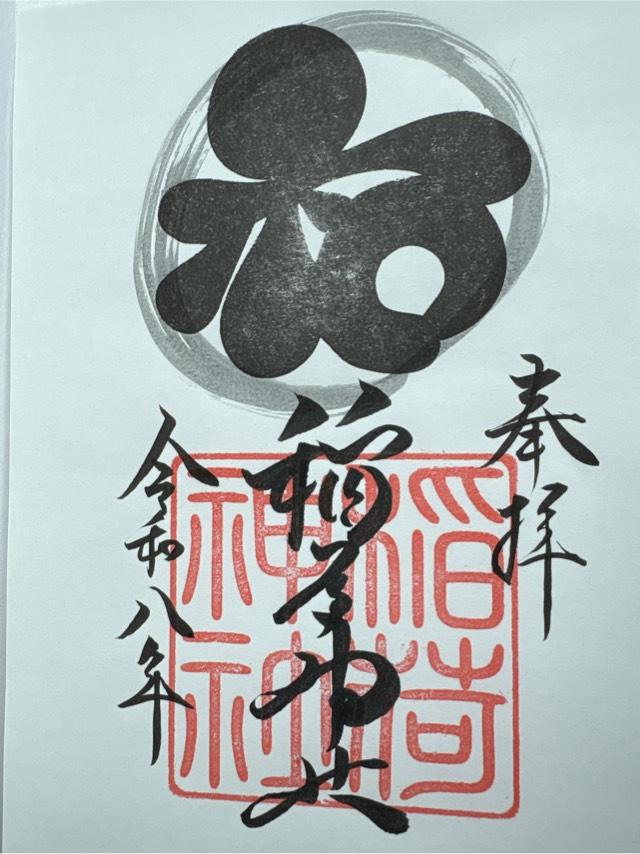 奉拝
稲荷神社
令和八年
稲荷
神社